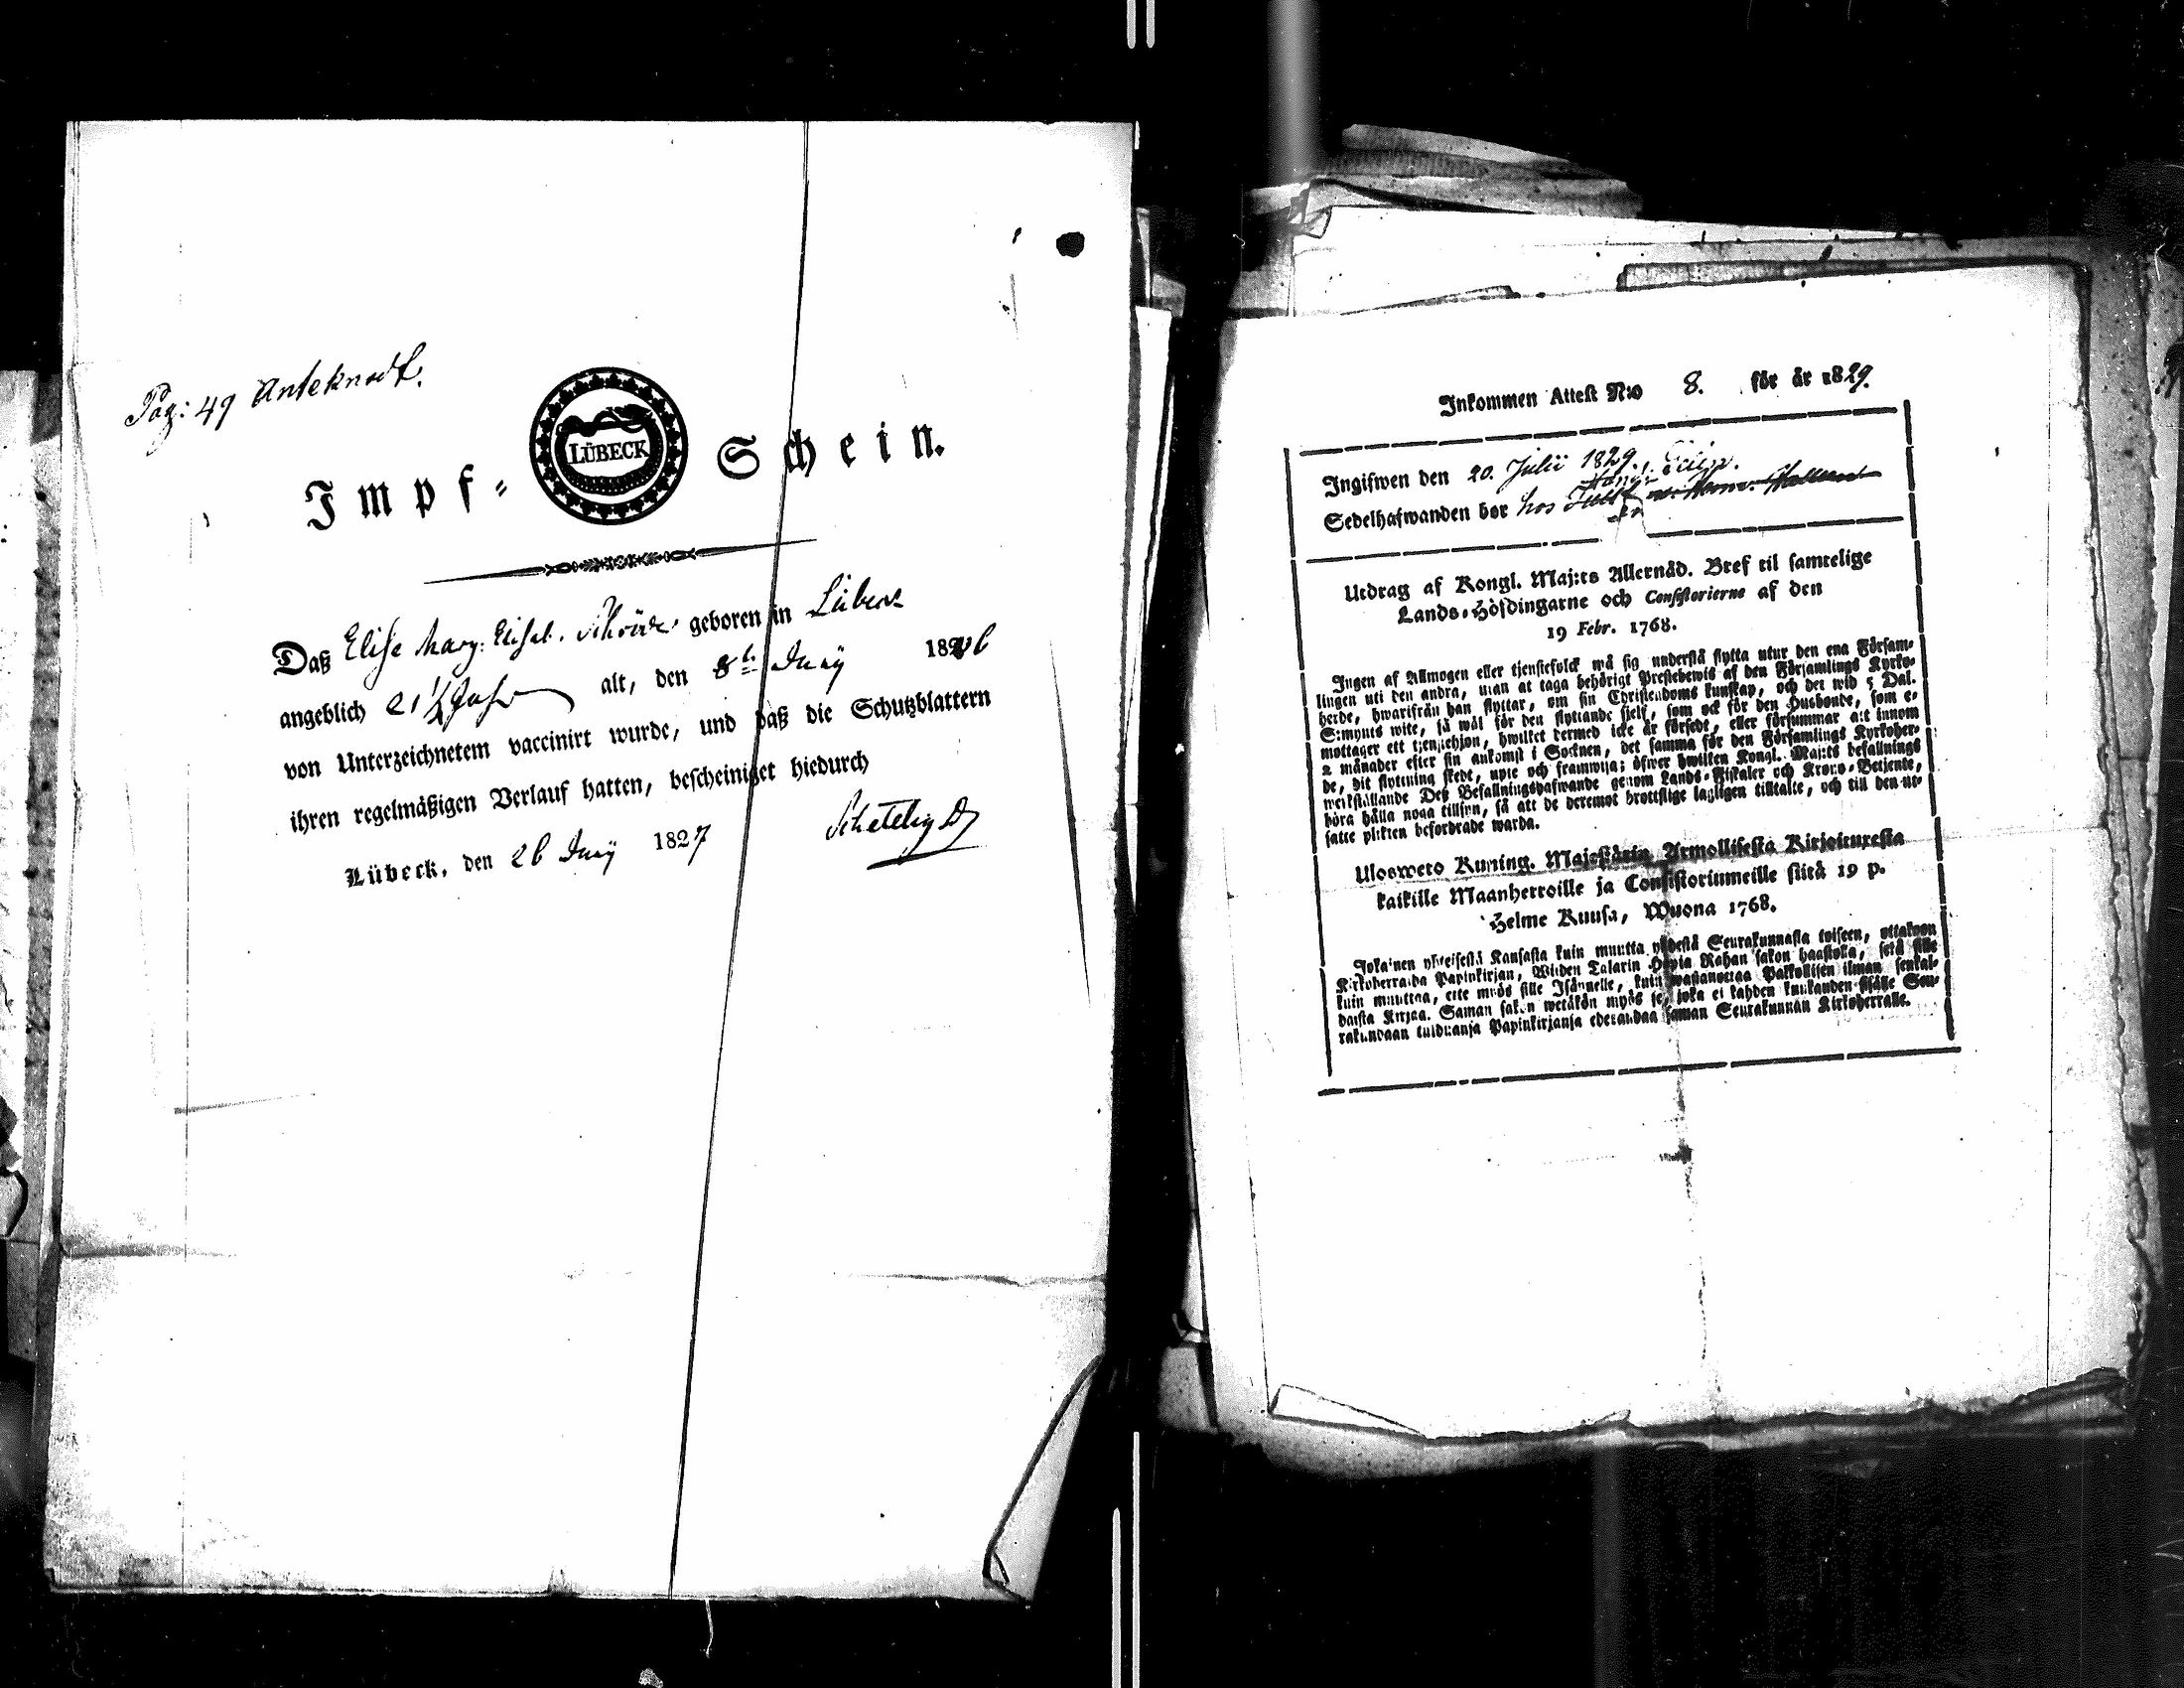 Pag: 49 Anteknadt.
Impf-
LÜBECK
Schein.
Daß Elise Marg: Elisab. geboren in Lübeck
angeblich 21 1/2 Jahr alt, den 8t Juny
von Unterzeichnetem vaccinirt wurde, und daß die Schutzblattern
ihren regelmäßigen Verlauf hatten, bescheiniget hiedurch
Lübeck, den 26 Juny 1827
Inkommen Attest N:o 8. för år 1829.
Ingifwen den 20. Julii 1829.
Sedelhafwanden bor hos
Utdrag af Kongl. Maj:ts Allernåd. Bref til samtelige
Lands-Höfdingarne och Consistorierne af den
19 Febr. 1768.
Ingen af Allmogen eller tjenstefolck må sig understå flytta utur den ena Försam-
lingen uti den andra, utan at taga behörigt Prestebewis af den Församlings Kyrko-
herde, hwarifrån han flyttar, om sin Christendoms kunskap, och det wid 5 Dal.
S:mynts wite, så wäl för den flyttande sielf, som ock för den Husbonde, som e-
mottager ett tjenstehjon, hwilket dermed icke är försedt, eller försummar att innom
2 månader efter sin ankomst i Socknen, det samma för den Församlings Kyrkoher-
de, dit flyttning skedt, upte och framwisa; öfwer hwilken Kongl. Maj:ts befallnings
werkställande Deß Befallningshafwande genom Lands-Fiskaler och Krono-Betjente,
böra hålla noga tillsyn, så att de deremot brottslige lagligen tilltalte, och till den ut-
satte plikten befordrade warda.
Uloswero Kuning. Majestätin Armollisesta Kirjoituxesta
kaikille Maanherroille ja Consistoriumeille siitä 19 p.
Helme Kuusa, Wuona 1768.
Jokainen yhteisestä Kansasta kuin muutta yhdestä Seurakunnasta toiseen, ottakoon
Kirkoherralda Papinkirjan, Wiiden Talarin Hopia Rahan sakon haastolla, sekä sille
kuin muuttaa, ette myös sille Isännelle, kuin wastanottaa Palkollisen ilman senkal-
daista Kirjaa. Saman sakon wetäkön myös se, joka ei kahden kuukauden sisälle Seu-
rakundaan tulduansa Papinkirjansa edesandaa saman Seurakunnan Kirkoherralle.